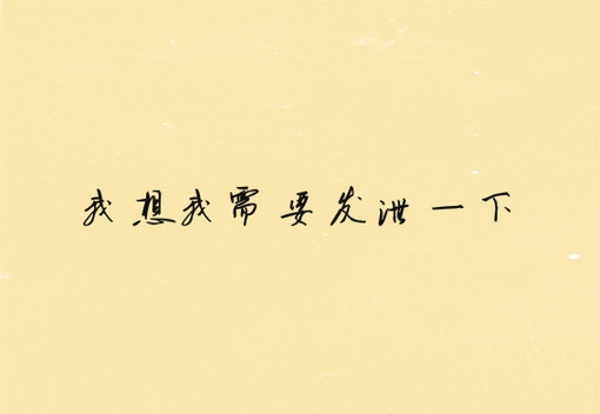 我想我需要发泄一下